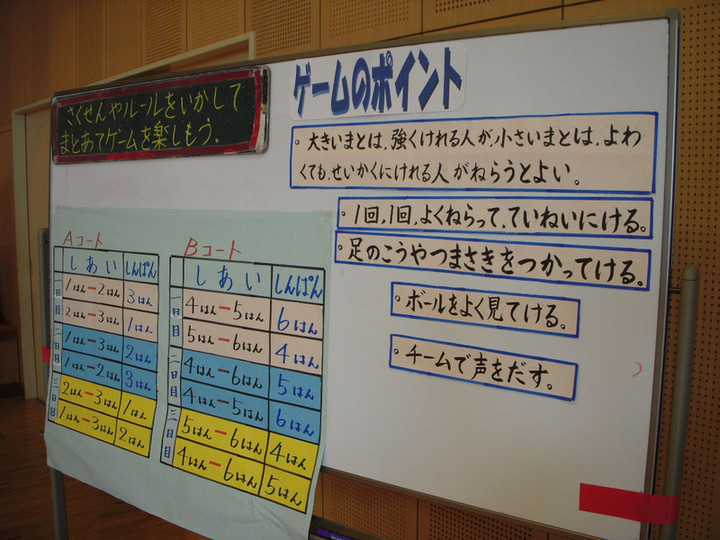 さくせんやルールをいかして
まとあてゲームを楽しもう。
ゲームのポイント
・大きいまとは、強くけれる人が、小さいまとは、よわ
くても、せいかくにけれる人がねらうとよい。
・1回、1回、よくねらって、ていねいにける。
・足のこうやつまさきをつかってける。
・ボールをよく見てける。
・チームで声をだす。
Aコート
しあい しんぱん
一日目 1はんー2はん 3はん
2はんー3はん 1はん
二日目 1はんー3はん 2はん
1はんー2はん 3はん
三日目 2はんー3はん 1はん
1はんー3はん 2はん
Bコート
しあい しんぱん
一日目 4はんー5はん 6はん
5はんー6はん 4はん
二日目 4はんー6はん 5はん
4はんー5はん 6はん
三日目 5はんー6はん 4はん
4はんー6はん 5はん